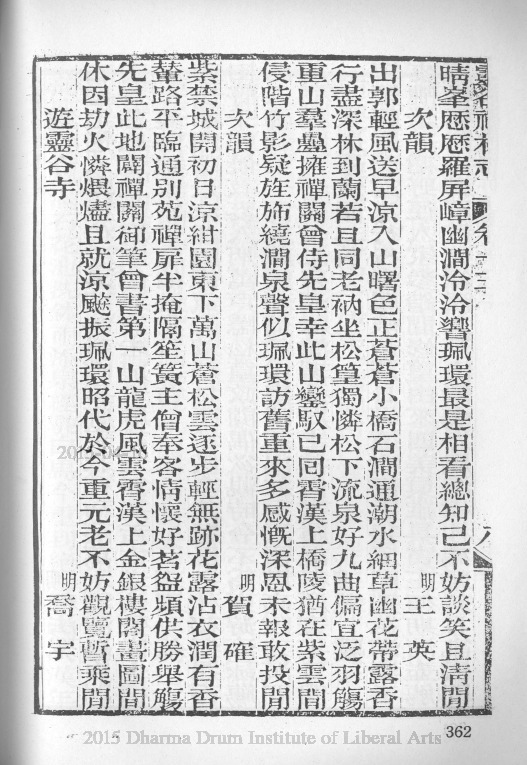 晴峯厯厯羅屏嶂幽澗泠泠響珮環最是相看總知己不妨談笑且淸閒
次韻 明 王英
出郭輕風送早涼入山曙色正蒼蒼小橋石澗通潮水細草幽花帶露香
行盡深林到蘭若且同老衲坐松篁獨憐松下流泉好九曲偏宜泛羽觴
重山羣壘擁禪關曾侍先皇幸此山鑾馭已回霄漢上橋陵猶在紫雲間
侵階竹影疑旌斾繞澗泉聲似珮環訪舊重來多感慨深恩未報敢投閒
次韻 明 賀確
紫禁城開初日涼紺園東下萬山蒼松雲逐步輕無跡花露沾衣潤有香
輦路平臨通別苑禪扉半掩隔笙簧主僧奉客情懷好茗盌頻供勝舉觴
先皇此地闢禪關御筆曾書第一山龍虎風雲霄漢上金銀樓閣畫圖間
休因劫火憐煨燼且就涼颷振珮環昭代於今重元老不妨觀覽暫乘閒
遊靈谷寺 明 喬宇
362
2015 Dharma Drum Institute of Liberal Arts